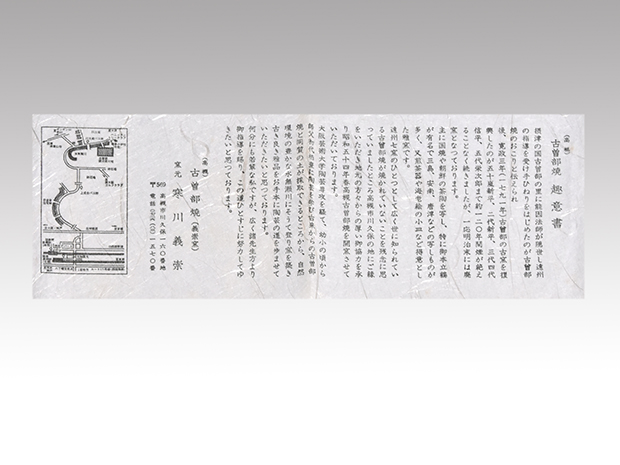 (高槻)
古曽部焼 趣意書
摂津の国古曽部の里に能因法師が隠世し遠州
の指導を受け手ひねりをはじめたのが古曽部
焼のおこりと伝えられ
後、寛政三年(一七九一年)古曽部の古窯を復
興したのが五十嵐新平、二代新平、三代四代
信平、五代栄次郎まで約一二〇年間煙が絶え
ることなく続きましたが、一応明治末には廃
窯となっております。
主に国焼や朝鮮の茶陶を写し、特に御本立鶴
が有名で三島、安南、唐津などの写しものが
多く、又煎茶器や海老絵の小皿など得意とし
た雅窯です。
遠州七窯のひとつとして広く世に知られてい
る古曽部焼が焼かれていないことを残念に思
っていましたところ高槻市川久保の地にご縁
をいただき地元の方々からの厚い御協力を承
り昭和五十四年春高槻古曽部焼を開窯させて
いただいております。
大阪芸術大学陶芸専攻を経て、幼小の頃から
焼と同質の土が採取できるところから、自然
環境の豊かな水無瀬川にそうて登り窯を築き
古き良き雅品をお手本に陶芸の道を歩ませて
いただきたいと思っております。
何分にも若輩な私ですが、広く諸先生方より
御指導を賜り、この道ひとすじに努力してゆ
きたいと思っております。
(高槻)
古曽部焼(義崇窯)
窯元 寒川義崇
〒569 高槻市川久保一六〇番地